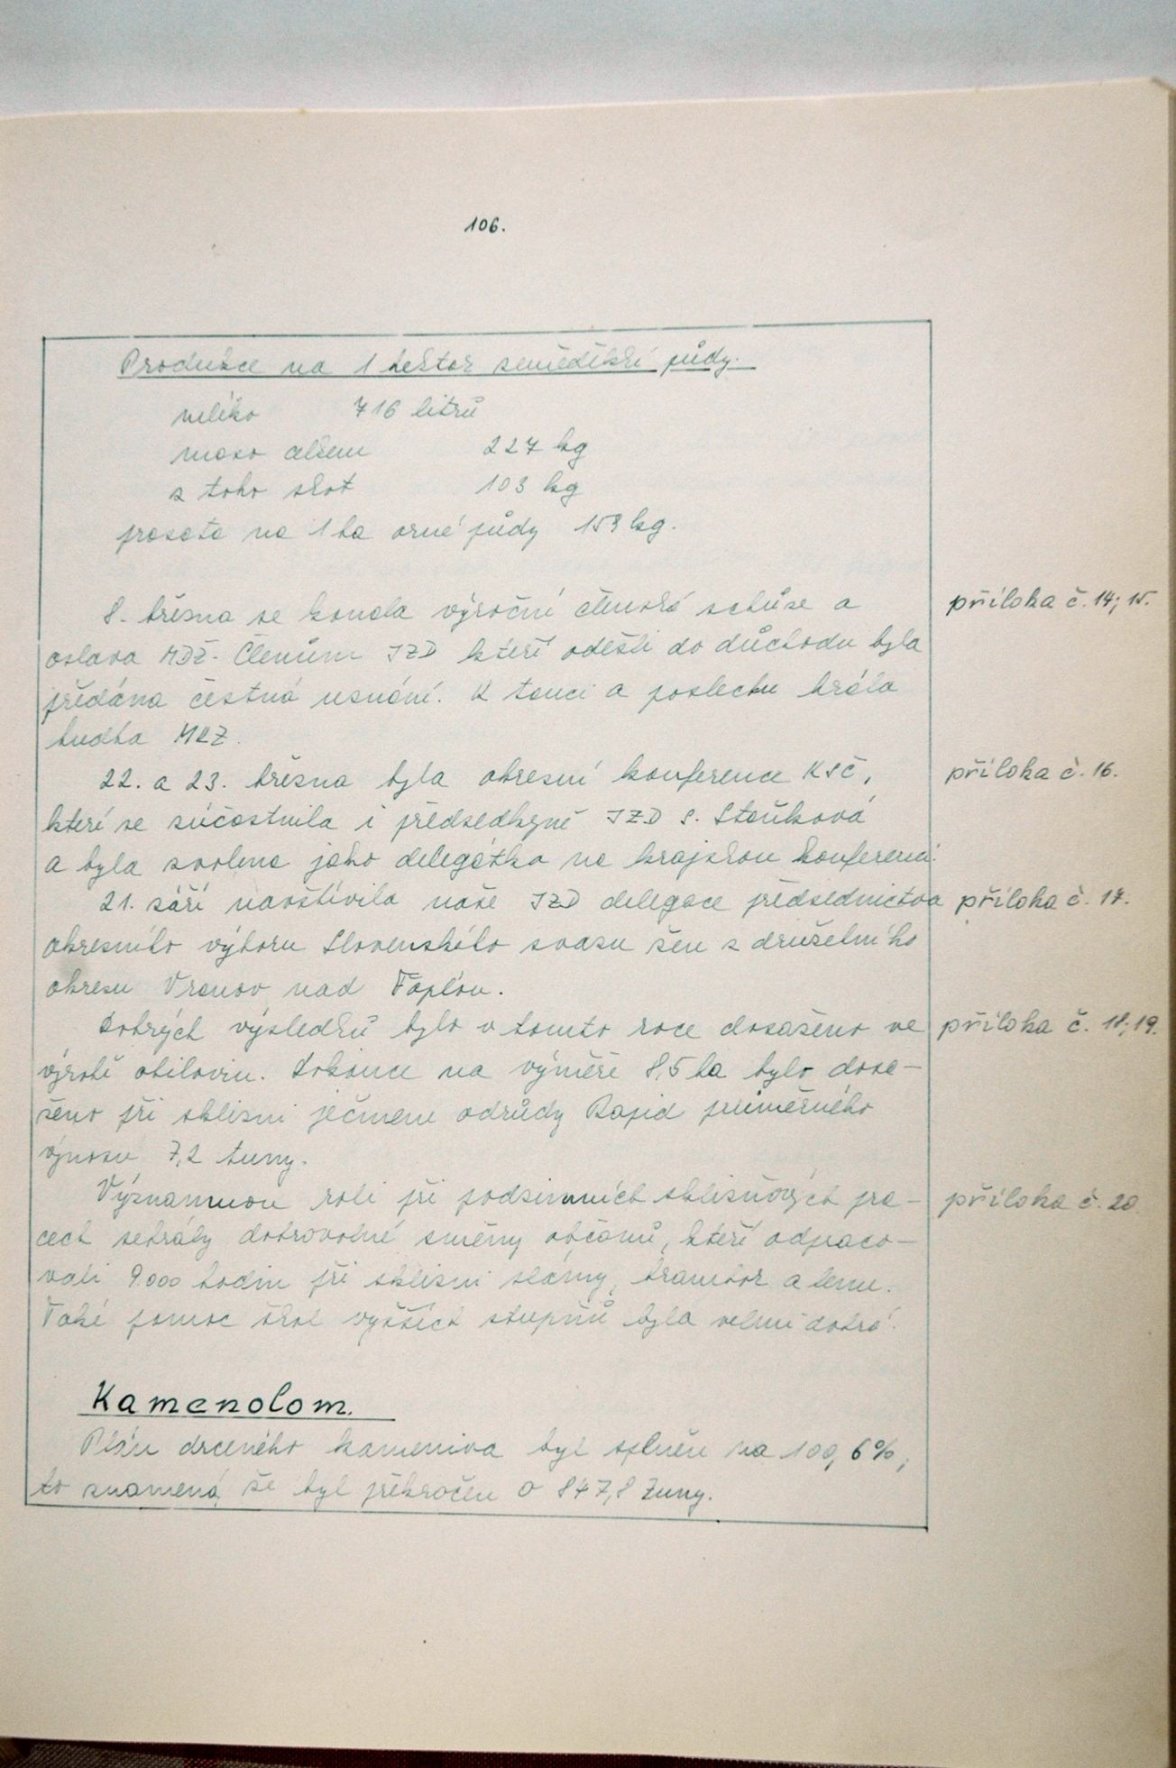 106.
Produkce na 1 hektar zemědělské půdy.
mléko 716 litrů
maso celkem 227 kg
z toho skot 103 kg
prasata na 1 ha orné půdy 159 kg.
8. března se konala výroční členská schůze a
příloha č. 14; 15.
oslava MDŽ. Členům JZD kteří odešli do důchodu byla
předána čestná uznání. K tanci a poslechu hrála
hudba MKZ.
22. a 23. března byla okresní konference KSČ,
příloha č. 16.
které se zúčastnila i předsedkyně JZD S. Staňková
a byla zvolena jako delegátka na krajskou konferenci.
21. září navštívila naše JZD delegace předsednictva
příloha č. 17.
okresního výboru Slovenského svazu žen z družebního
okresu Vranov nad Topľou.
Dobrých výsledků bylo v tomto roce dosaženo ve
příloha č. 18; 19.
výrobě obilovin. Dokonce na výměře 8,5 ha bylo dosa-
ženo při sklizni ječmene odrůdy Rapid průměrného
výnosu 7,2 tuny.
Významnou roli při podzimních sklizňových pra-
příloha č. 20.
cech sehrály dobrovolné směny občanů, kteří odpraco-
vali 9.000 hodin při sklizni slámy, brambor a lenu.
Také pomoc škol vyšších stupňů byla velmi dobrá.
Kamenolom.
Plán drceného kameniva byl splněn na 100,6%,
to znamená, že byl překročen o 847,8 tuny.